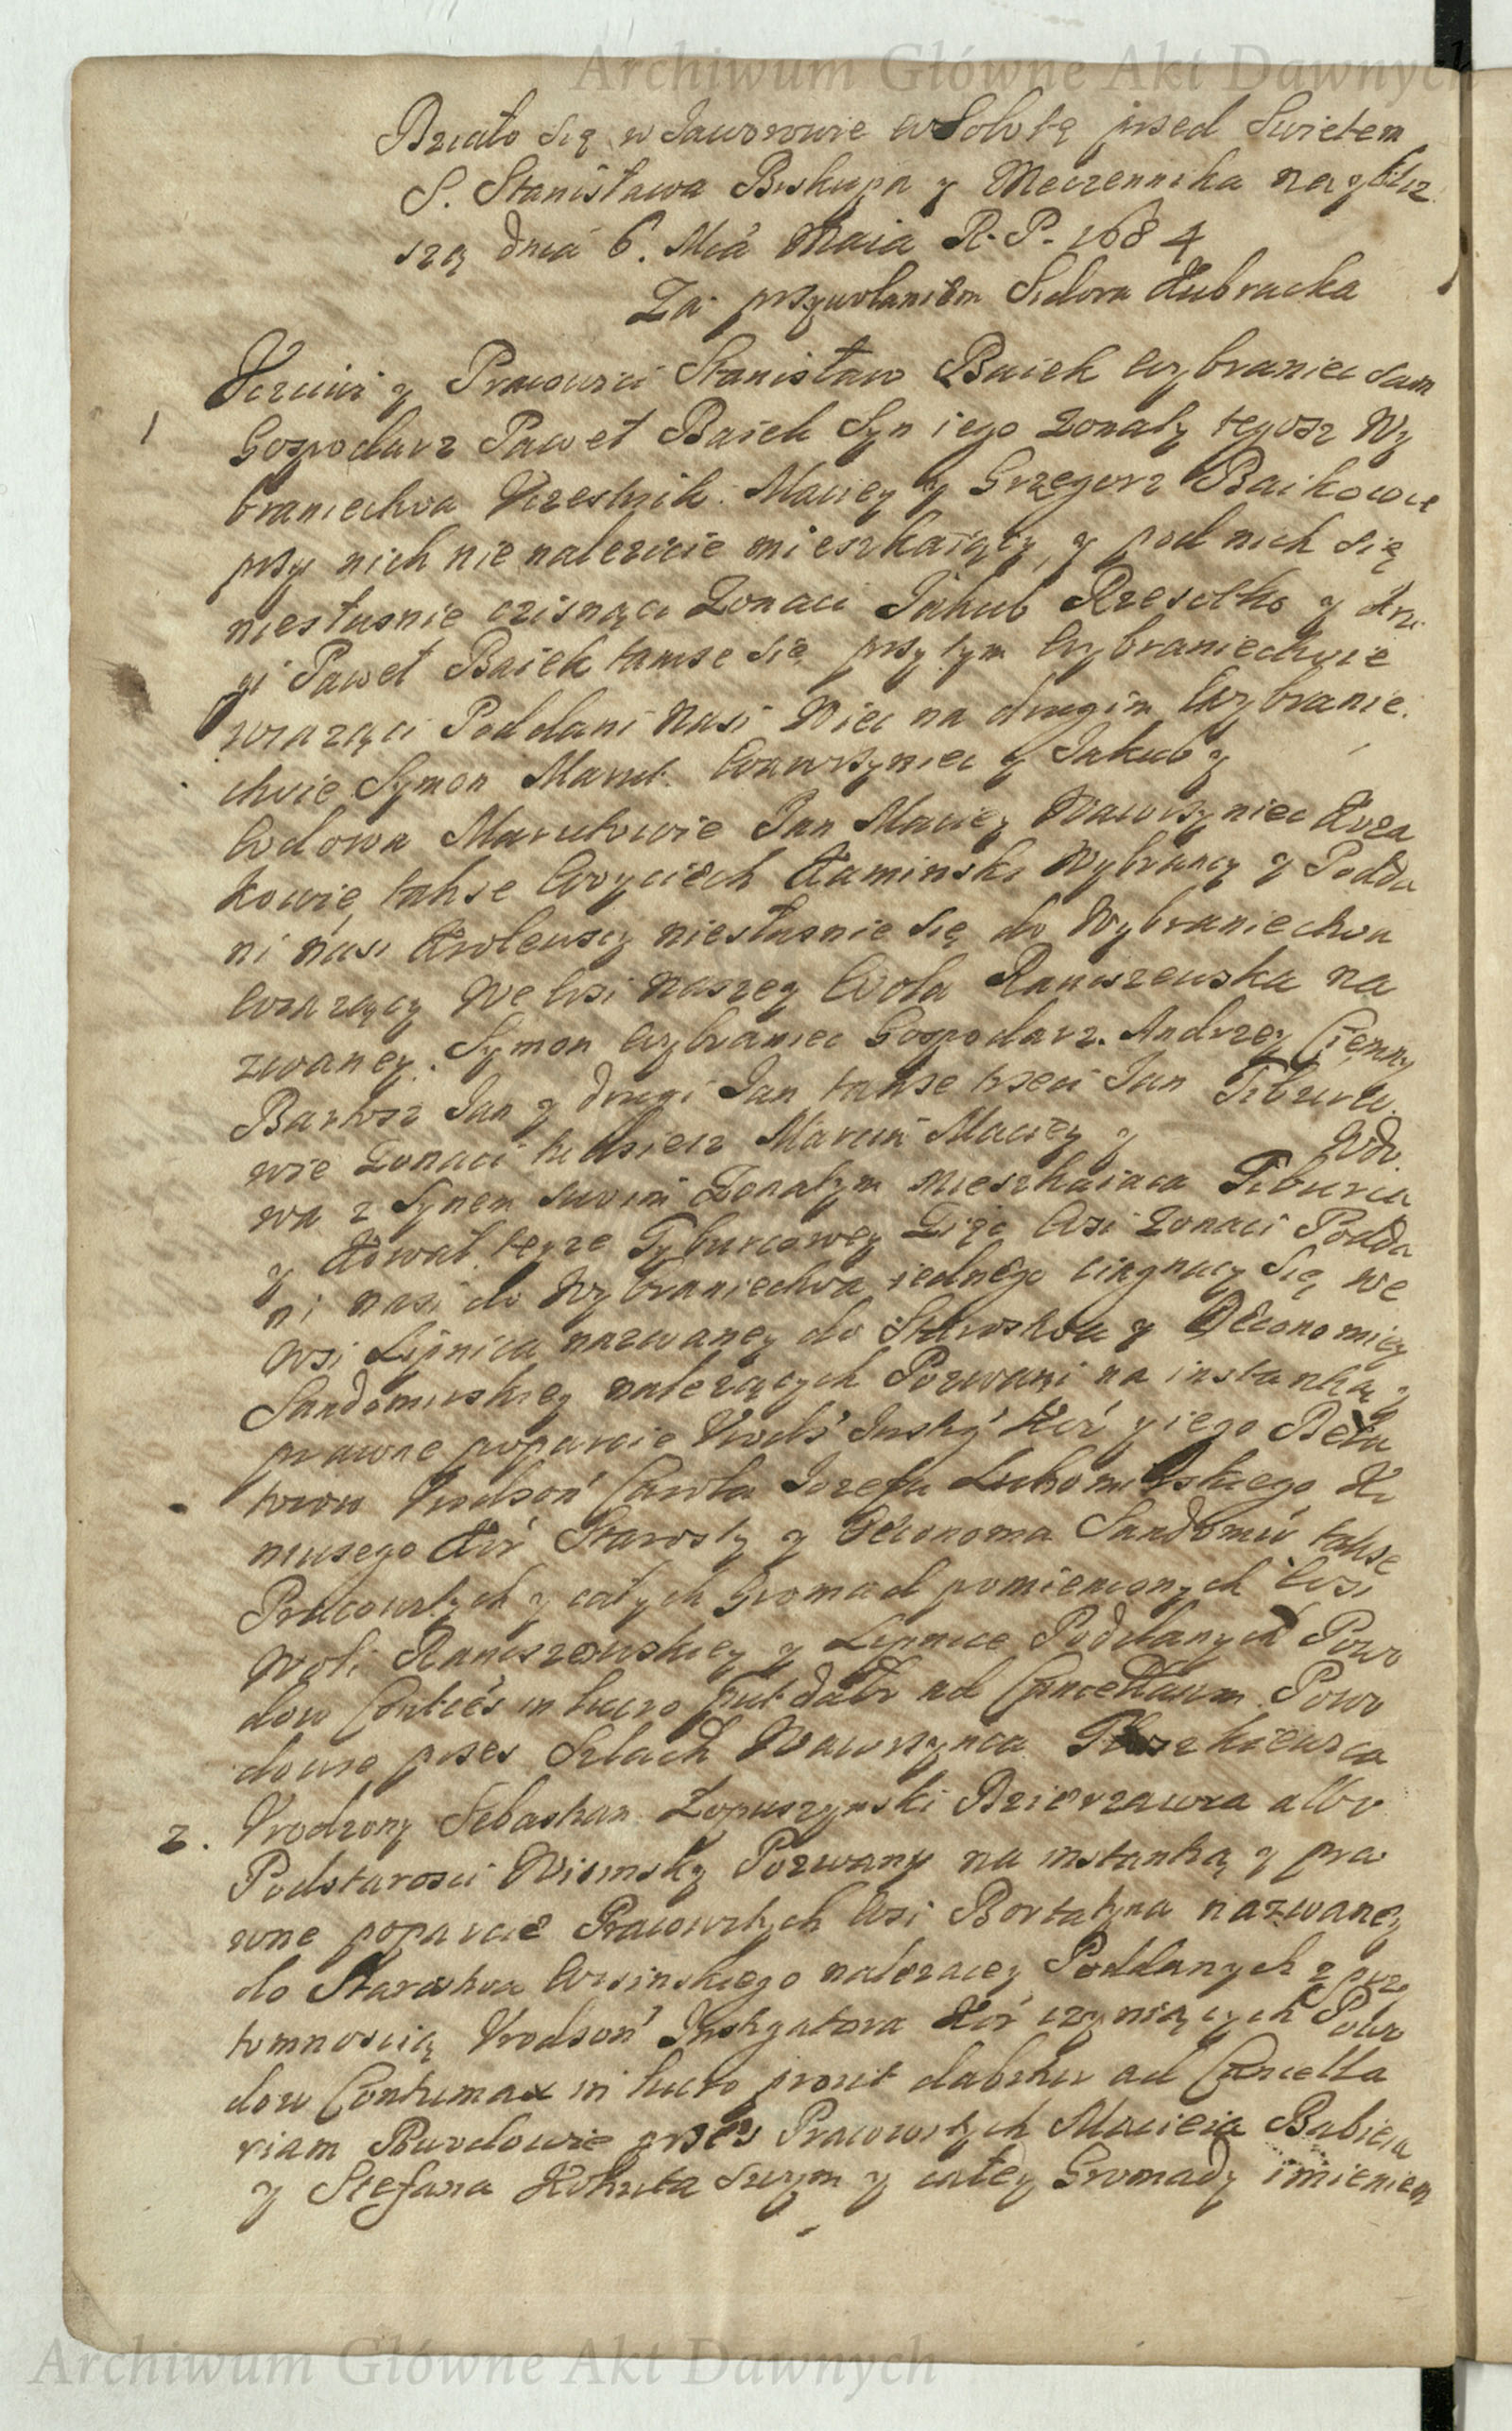 Archiwum Główne Akt Dawnych
Działo się w Jaworowie w Sobotę przed Swietem
S. Stanisława Biskupa y Meczennika nayblisz
szą dnia 6. Mca Maia R. P. 1684
Za przywołaniem Sidora Kubracka
1 Uczciwi y Pracowici Stanisław Baiek Wybraniec sam
Gospodarz Paweł Baiek Syn iego Zonaty tegosz Wy
braniectwa Uczestnik. Maciey y Grzegorz Baikowie
przy nich nie nalezicie mieszkaiący, y pod nich się
niesłusnie cisnąci Zonaci Jakub Rzesotko y dru
gi Paweł Baiek tamse się przy tym Wybraniectwie
wiąząci Poddani Nasi Wiec na drugim Wybranie
ctwie Symon Marut. Wawrzyniec y Jakub y
Wdowa Marutowie Jan Maciey Wawrzyniec
kowie, takse Woyciech Kaminski Wybrancy y Podda
ni nasi Krolewscy niesłusnie się do Wybraniectwa
wiazący We Wsi naszey Wola Raniszewska na
zwaney. Symon Wybraniec Gospodarz. Andrzey Ciemny
Bartosz Jan y drugi Jan takse trzeci Jan Tiburco
wie Zonaci tudziesz Marcin Maciey y Wdo
wa z Synem swoim Zonatym mieszkaiaca Tiburca
y Kowal teyze Tyburcowey Zięć Wsi Zonaci Podda
ni nasi do Wybraniectwa iednego ciągnący się we
Wsi Lipnica nazwaney do Starostwa y Oeconomiey
Sandomirskiey nalezących Pozwani na instantią y
prawne poparcie Urodz Instig Kor y iego Dela
torow Urodzon Carola Jozefa Lubomirskiego Ko
niusego Kor Starosty y Oeconoma Sandomir takse
Pracowitych y całych Gromad pomienionych Wsi
Woli Raniszewskiey y Lipnice Poddanych Powo
dow Contces in lucro put dabr ad Cancellariam. Powo
dowie przez Szlach Wawrzynca
2. Urodzony Sebastian Łopuszynski Dzierzawca albo
Podstarosci Wisinsky Pozwany na instantią y pra
wne poparcie Pracowitych Wsi Bortatyna nazwaney
do Starostwa Wisinskiego nalezacey Poddanych z przy
tomnoscią Urodzon Instygatora Kor czyniących Powo
dow Contumax in lucro prout dabitur ad Cancella
riam Powodowie przes Pracowitych Macieia Babieia
y Stefana Kohuta swym y całey Gromady imieniem
Archiwum Główne Akt Dawnych